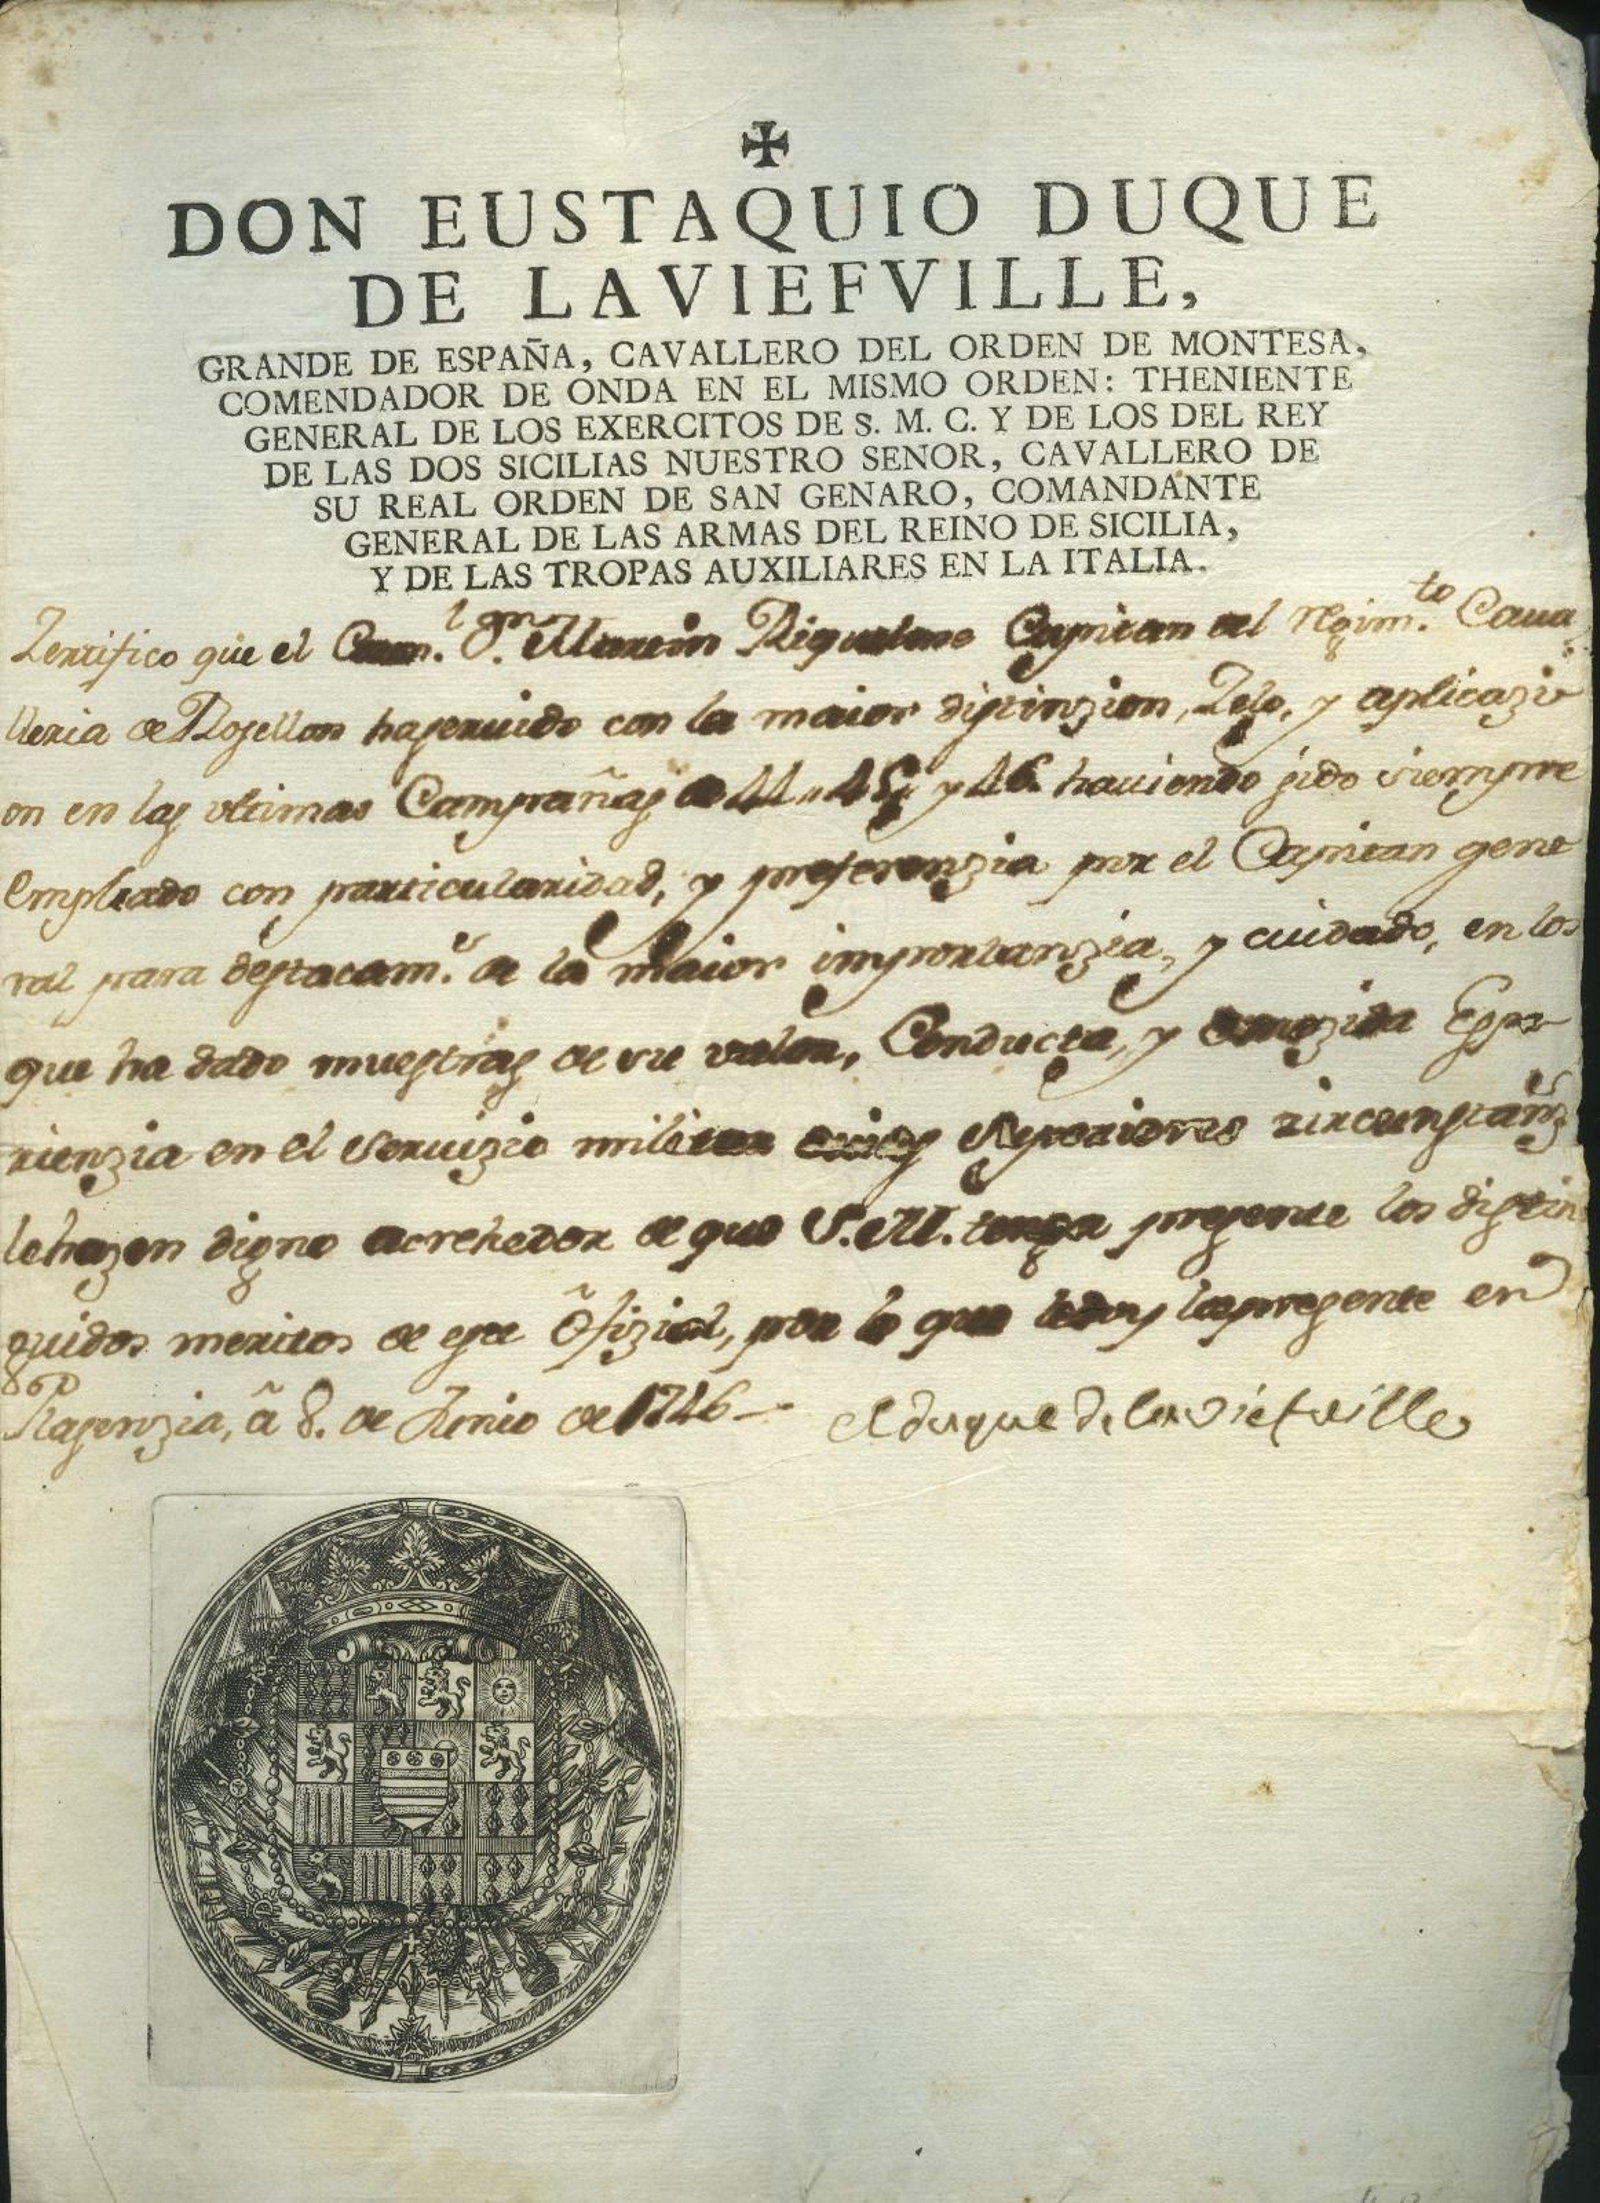 ✠
DON EUSTAQUIO DUQUE
DE LAVIEFVILLE,
GRANDE DE ESPAÑA, CAVALLERO DEL ORDEN DE MONTESA,
COMENDADOR DE ONDA EN EL MISMO ORDEN: THENIENTE
GENERAL DE LOS EXERCITOS DE S. M. C. Y DE LOS DEL REY
DE LAS DOS SICILIAS NUESTRO SENOR, CAVALLERO DE
SU REAL ORDEN DE SAN GENARO, COMANDANTE
GENERAL DE LAS ARMAS DEL REINO DE SICILIA,
Y DE LAS TROPAS AUXILIARES EN LA ITALIA.
Zertifico que el Martin Riquelme Capitan del regim.to Caua
lleria de Rosellon ha seruido con la maior distinzion, Zelo, y aplicazi
on en las vltimas Campañas de 44 " 45 y 46 hauiendo sido siempre
Empleado con particularidad, y preferenzia por el Capitan gene
ral para destacam.s de la maior importanzia, y cuidado, en los
que ha dado muestras de su valor, Conducta, y Espe
rienzia en el Seruizio militar cuias Superiores zircunstanz
le hazen digno acrehedor de que S.M. tenga presente los distin
guidos meritos de este Ofizial, por lo que le doy la presente en
Plasenzia, à 8. de Junio de 1746
el duque de la viefuille